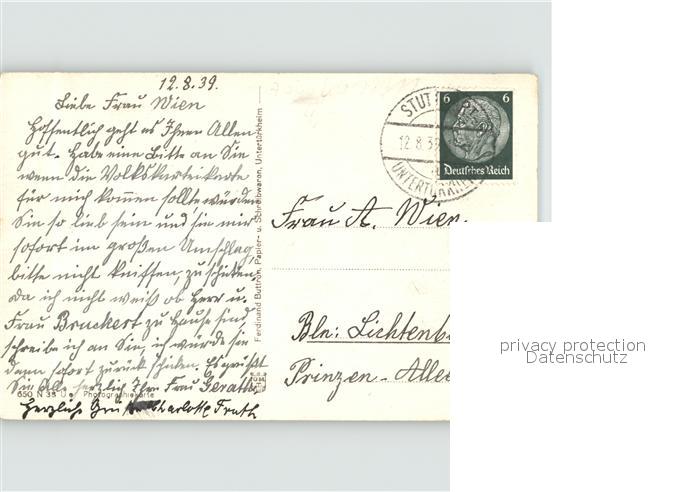 12.8.39.
Liebe Frau Wien
Hoffentlich geht es Ihnen Allen
gut. Habe eine Bitte an Sie
wenn die Volkskarteikarte
für mich kommen sollte würden
Sie so lieb sein und sie mir
sofort im großen Umschlag,
bitte nicht kniffen, zu schicken.
Da ich nicht weiß ob Herr u.
Frau Bruckert zu Hause sind,
schreibe ich an Sie, ich würde sie
dann sofort zurück schicken. Es grüßt
Sie Alle herzlich Ihre Frau Gerath
650 N 38 U.e. Photographiekarte
Herzliche Charlotte
Ferdinand Buttron, Papier- u. Schreibwaren, Untertürkheim
STUTTGART
12.8.39
UNTERTÜRKHEIM
6 6
Deutsches Reich
Frau A. Wien.
Bln: Lichtenb
Prinzen-Allee
privacy protection
Datenschutz